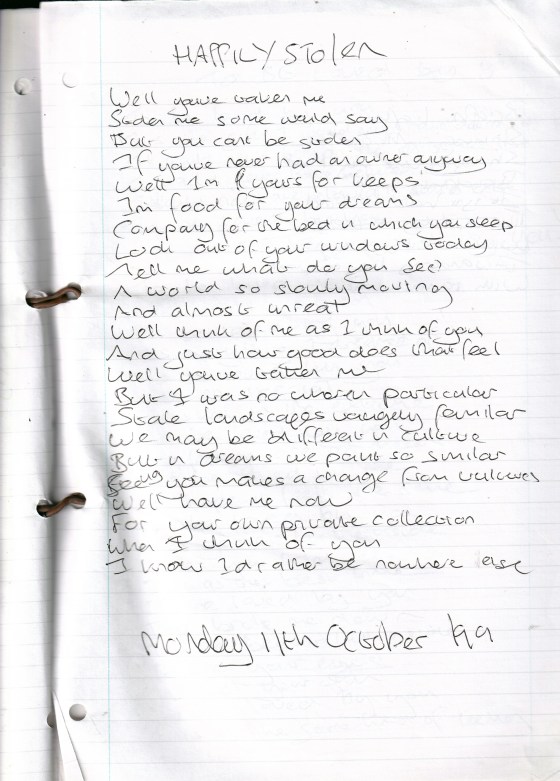 HAPPILY STOLEN
Well youve taken me
Stolen me some would say
But you cant be stolen
If youve never had an owner anyway
Well Im yours for keeps
Im food for your dreams
Company for the bed in which you sleep
Look out of your windows today
Tell me what do you see?
A world so slowly moving
And almost unreal
Well think of me as I think of you
And just how good does that feel
Well youve taken me
But I was no where in particular
Stale landscapes vaugely familar
We may be different in culture
But in dreams we paint so similar
Seeing you makes a change from vultures
Well have me now
For your own private collection
When I think of you
I know Id rather be nowhere else
Monday 11th October 99